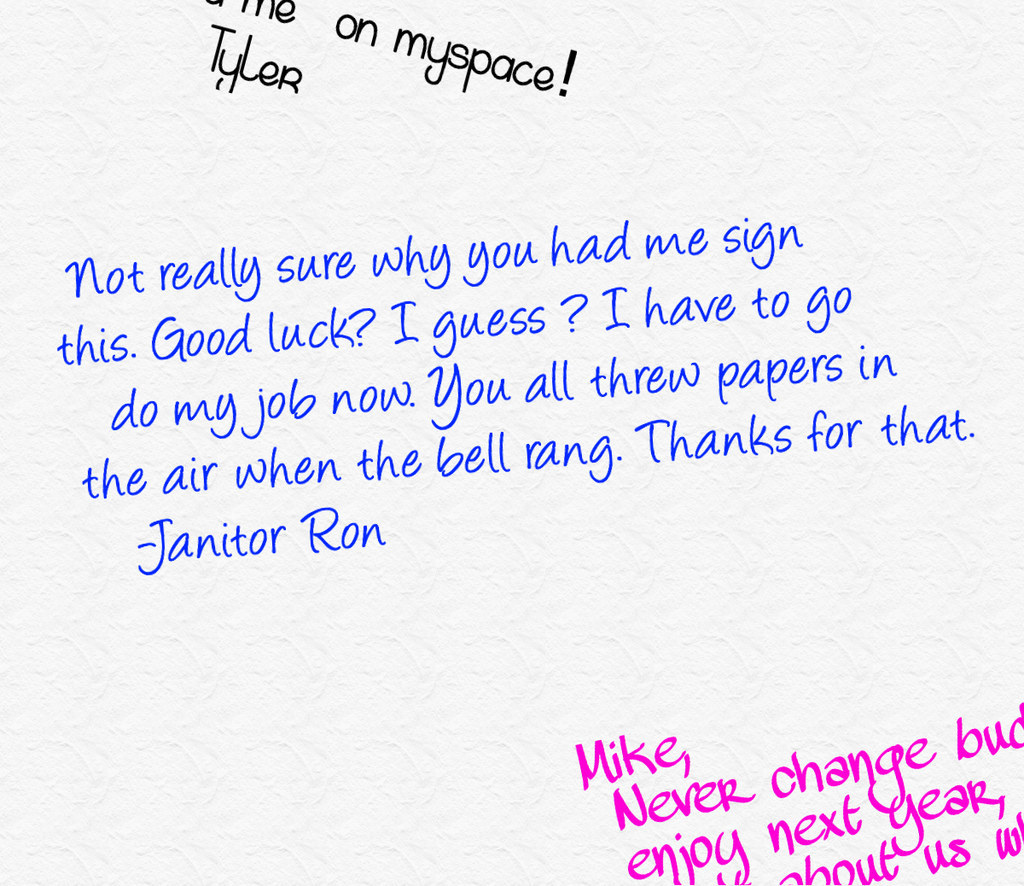 me on myspace!
Tyler
Not really sure why you had me sign
this. Good luck? I guess? I have to go
do my job now. You all threw papers in
the air when the bell rang. Thanks for that.
-Janitor Ron
Mike,
Never change
enjoy next year,
about us